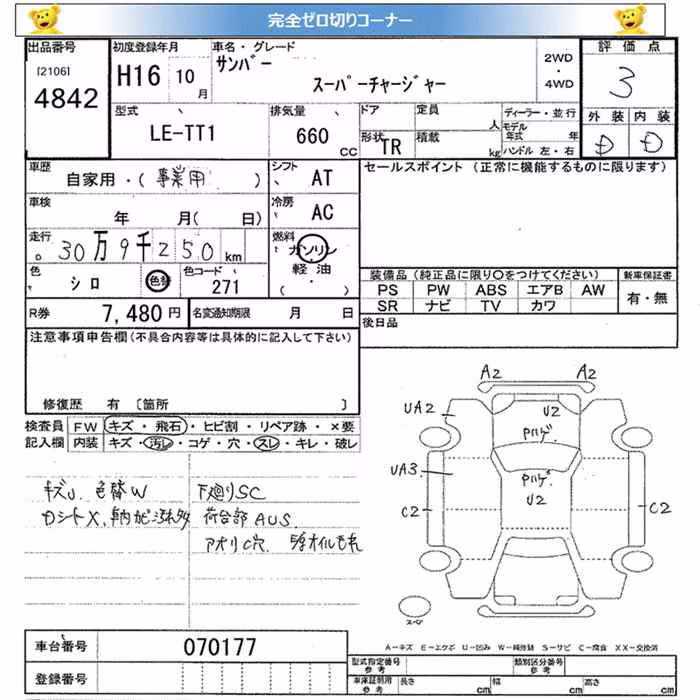 完全ゼロ切りコーナー
出品番号
[2106]
4842
初度登録年月
H16 10月
車名・グレード
サンバー
スーパーチャージャー
2WD
・
4WD
評価点
3
外装 内装
D D
型式
LE-TT1
排気量
660 CC
ドア
形状
TR
定員
人
積載
kg
ディーラー・並行
モデル
年式 年
ハンドル 左・右
車歴
自家用・(事業用)
シフト
AT
セールスポイント (正常に機能するものに限ります)
車検
年 月( 日)
冷房
AC
走行
30万9千250km
燃料
ガソリン
軽油
( ・ )
色
シロ
色替
色コード
271
装備品 (純正品に限り○をつけてください)
新車保証書
PS PW ABS エアB AW
SR ナビ TV カワ
有・無
R券
7,480円
名変通知期限
月 日
後日品
注意事項申告欄(不具合内容等は具体的に記入して下さい)
修復歴 有 [箇所 ]
検査員
記入欄
FW キズ・飛石・ヒビ割・リペア跡・×要
内装 キズ・汚レ・コゲ・穴・スレ・キレ・破レ
キズU. 色替W
下廻りSC
DシートX.
荷台部AUS.
アオリC穴.
A2 A2
UA2
U2
Pハゲ
UA3
Pハゲ
U2
C2 C2
スペア
A-キズ E-エクボ U-凹み W-補修跡 S-サビ C-腐食 XX-交換済
車台番号
070177
登録番号
型式指定番号
参考
類別区分番号
参考
車庫証明用
参考
長さ cm
幅 cm
高さ cm